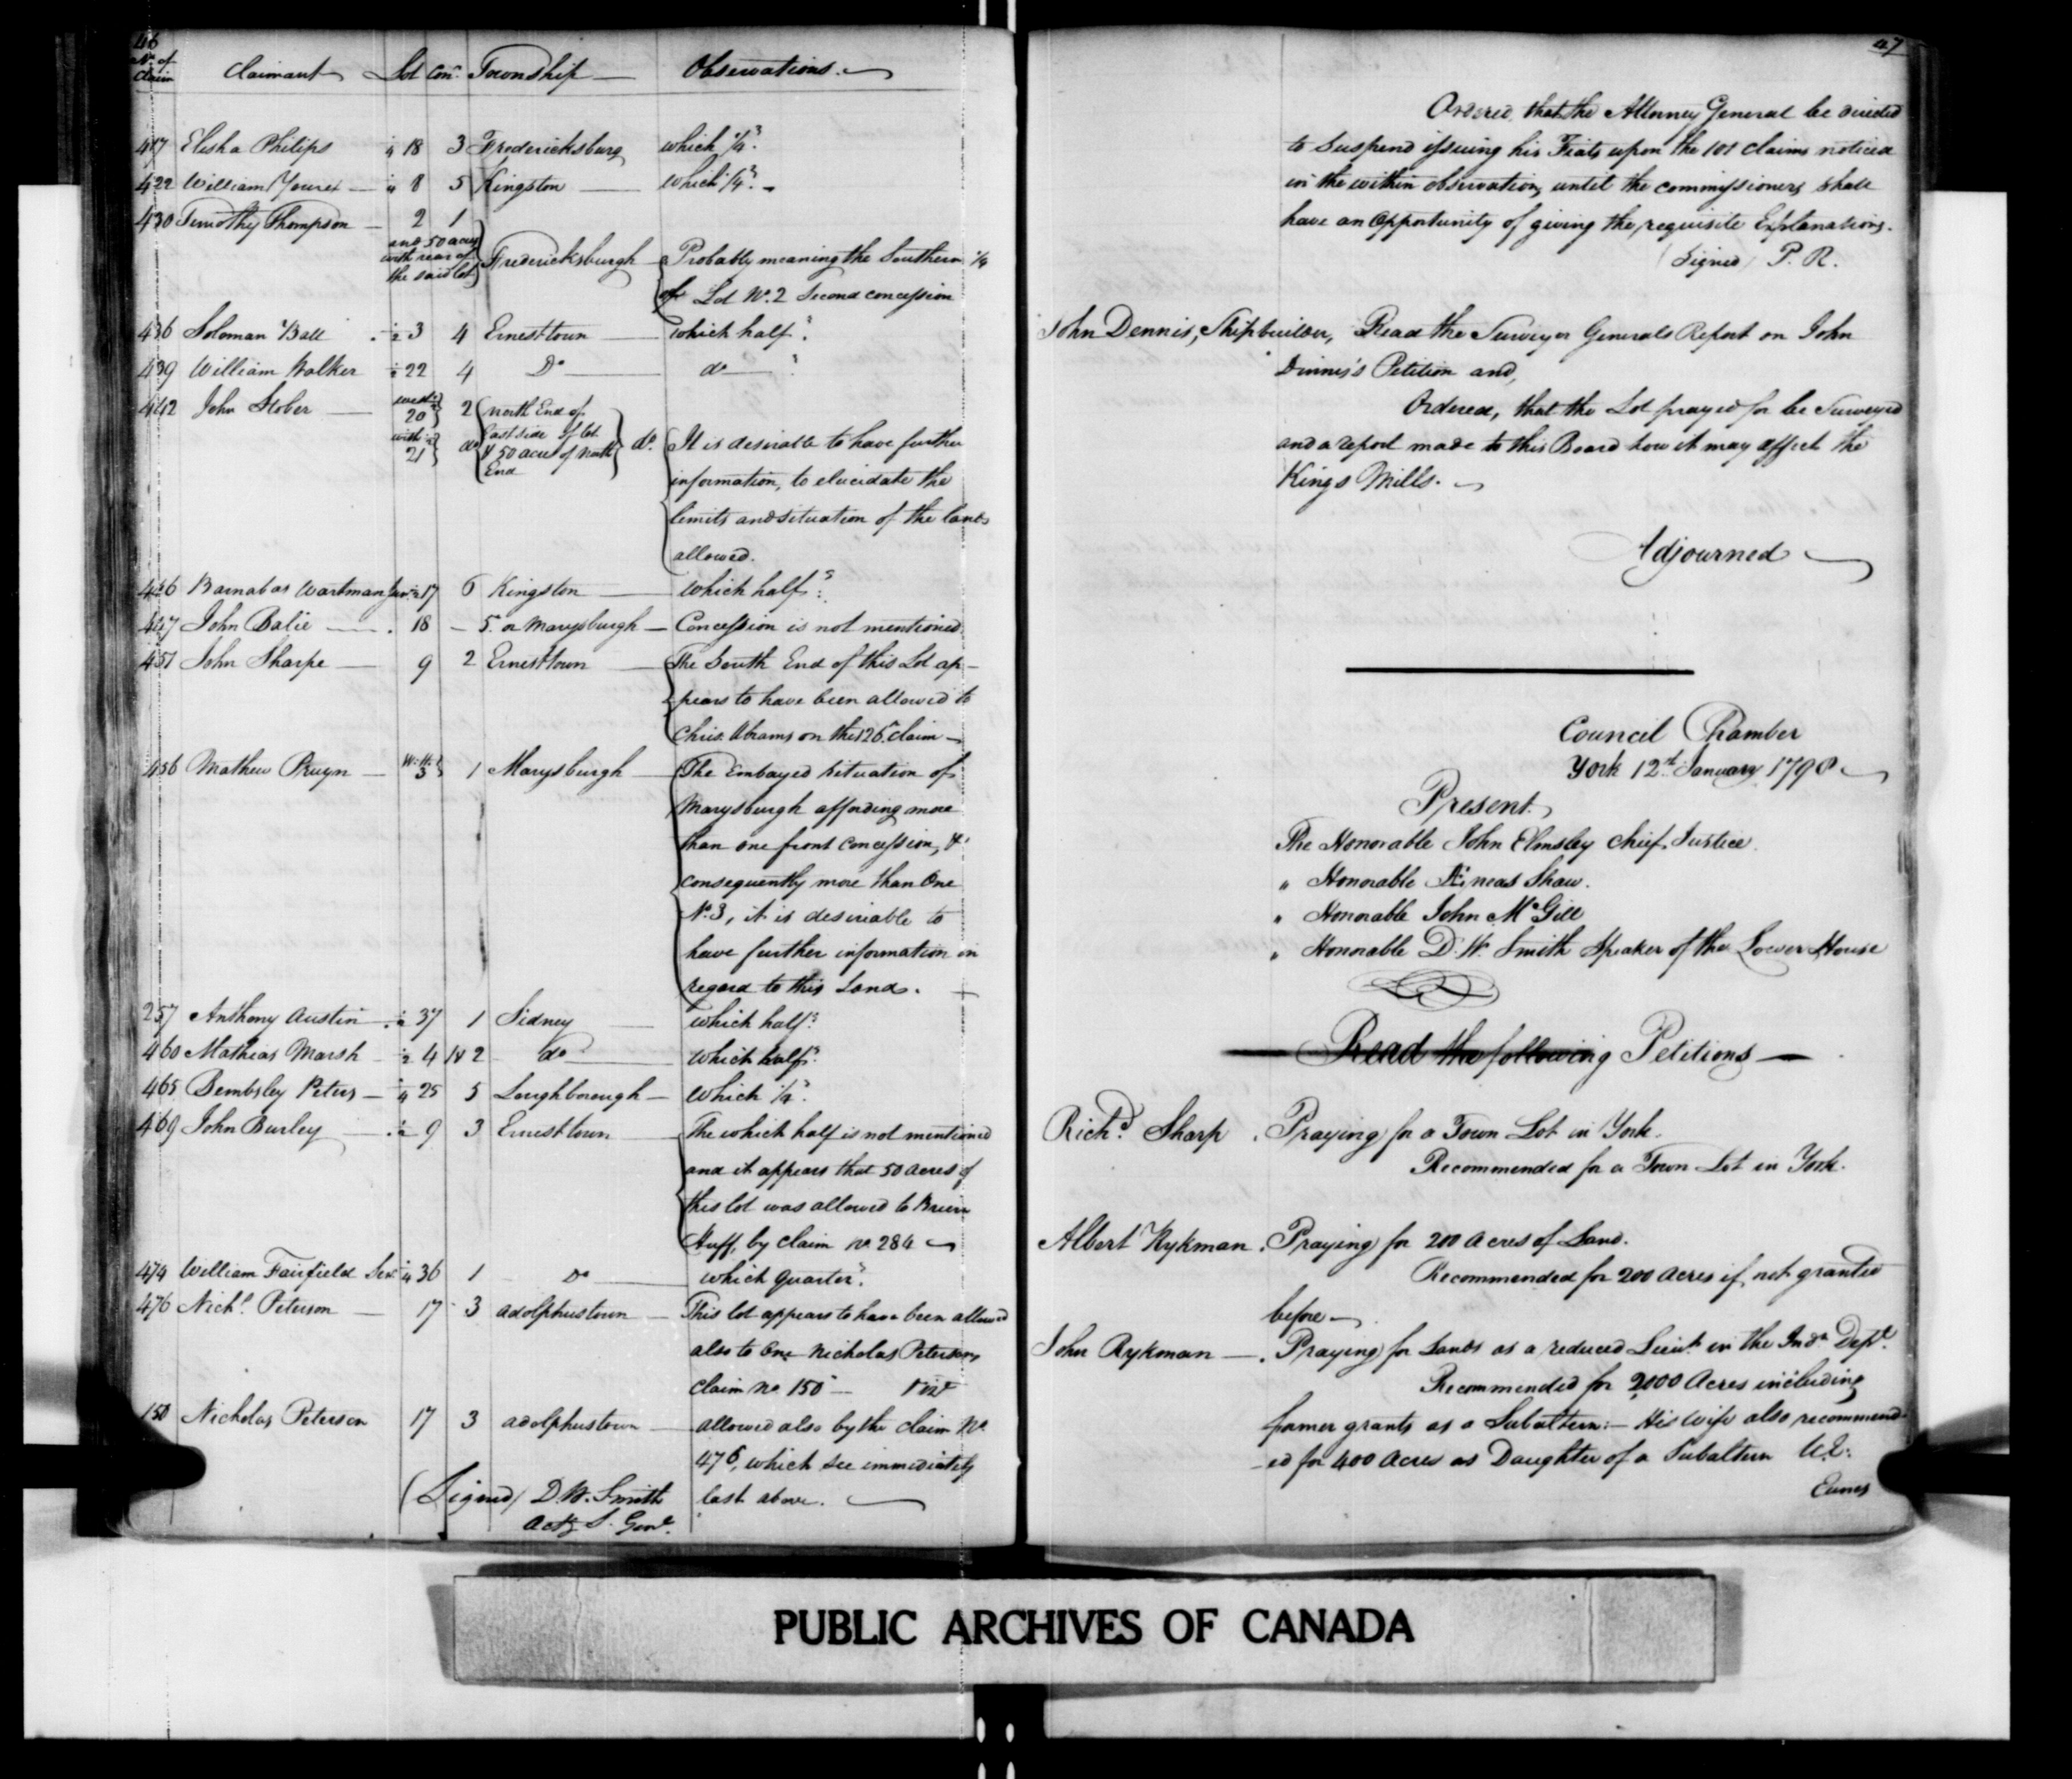 46
No. of Claim Claimant Lot Con. Township Observations.
417 Elisha Philips ¼ 18 3 Fredericksburg which ¼?
422 William Yourex ¼ 8 5 Kingston which ¼?
430 Timothy Thompson 2 1
and 50 acres
with rear of
the said lot
Fredericksburgh Probably meaning the Southern ¼
of Lot No. 2 Second concession
436 Soloman Ball ½ 3 4 Ernesttown which half?
439 William Walker ½ 22 4 Do do ?
442 John Stober west ½ 20 2 north End of
East side of lot
with ½ 21 do & 50 acres of North
End
do. It is desirable to have further
information, to elucidate the
limits and situation of the lands
allowed.
446 Barnabas Wartman Junr ½ 17 6 Kingston which half?
447 John Balie 18 5. or Marysburgh Concession is not mentioned
451 John Sharpe 9 2 Ernesttown The South End of this Lot ap-
pears to have been allowed to
Chris. Abrams on the 126 claim
456 Mathew Pruyn W. H. 3 1 Marysburgh The Embayed situation of
Marysburgh affording more
than one front concession, &
consequently more than One
No. 3, it is desireable to
have further information in
regard to this Land.
257 Anthony Austin ½ 37 1 Sidney which half?
460 Mathias Marsh ½ 4 1 & 2 do which half?
465 Bembsley Peters ¼ 25 5 Loughborough which ¼?
469 John Burley ½ 9 3 Ernesttown The which half is not mentioned
and it appears that 50 acres of
this lot was allowed to
Huff, by claim No 284
474 William Fairfield Senr ¼ 36 1 Do which quarter?
476 Nichs. Peterson 17 3 Adolphustown This lot appears to have been allowed
also to One Nicholas Peterson,
claim No. 150
150 Nicholas Peterson 17 3 Adolphustown allowed also by the claim No.
476, which see immediately
last above.
(Signed) D. W. Smith
Actg S. Genl.
47
Ordered, that the Attorney General be directed
to suspend issuing his Fiats upon the 101 claims noticed
in the within observation, until the commissioners shall
have an Opportunity of giving the requisite Explanations.
(Signed) P. R.
John Dennis, Shipbuilder, Read the Surveyor Generals Report on John
Dinnis's Petition and,
Ordered, that the Lot prayed for be Surveyed
and a report made to this Board how it may affect the
Kings Mills.
Adjourned
Council Chamber
York 12th January 1798
Present.
The Honorable John Elmsley Chief Justice.
" Honorable Æneas Shaw.
" Honorable John McGill
" Honorable D. W. Smith Speaker of the Lower House
Read the following Petitions
Richd. Sharp. Praying for a Town Lot in York.
Recommended for a Town Lot in York.
Albert Rykman. Praying for 200 acres of Land.
Recommended for 200 acres if not granted
before
John Rykman. Praying for Lands as a reduced Lieut. in the Indn Dept.
Recommended for 2000 Acres including
former grants as a Subaltern: His wife also recommend-
-ed for 400 Acres as Daughter of a Subaltern U.E.
Eunes
PUBLIC ARCHIVES OF CANADA